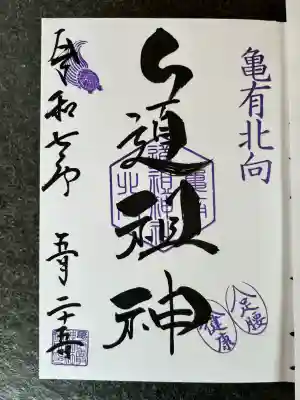 亀有北向
道祖神
令和七年 五月二十五日
足腰
健康